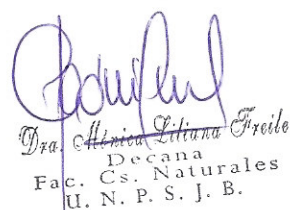 Dra. Mónica Liliana Freile
Decana
Fac. Cs. Naturales
U. N. P. S. J. B.